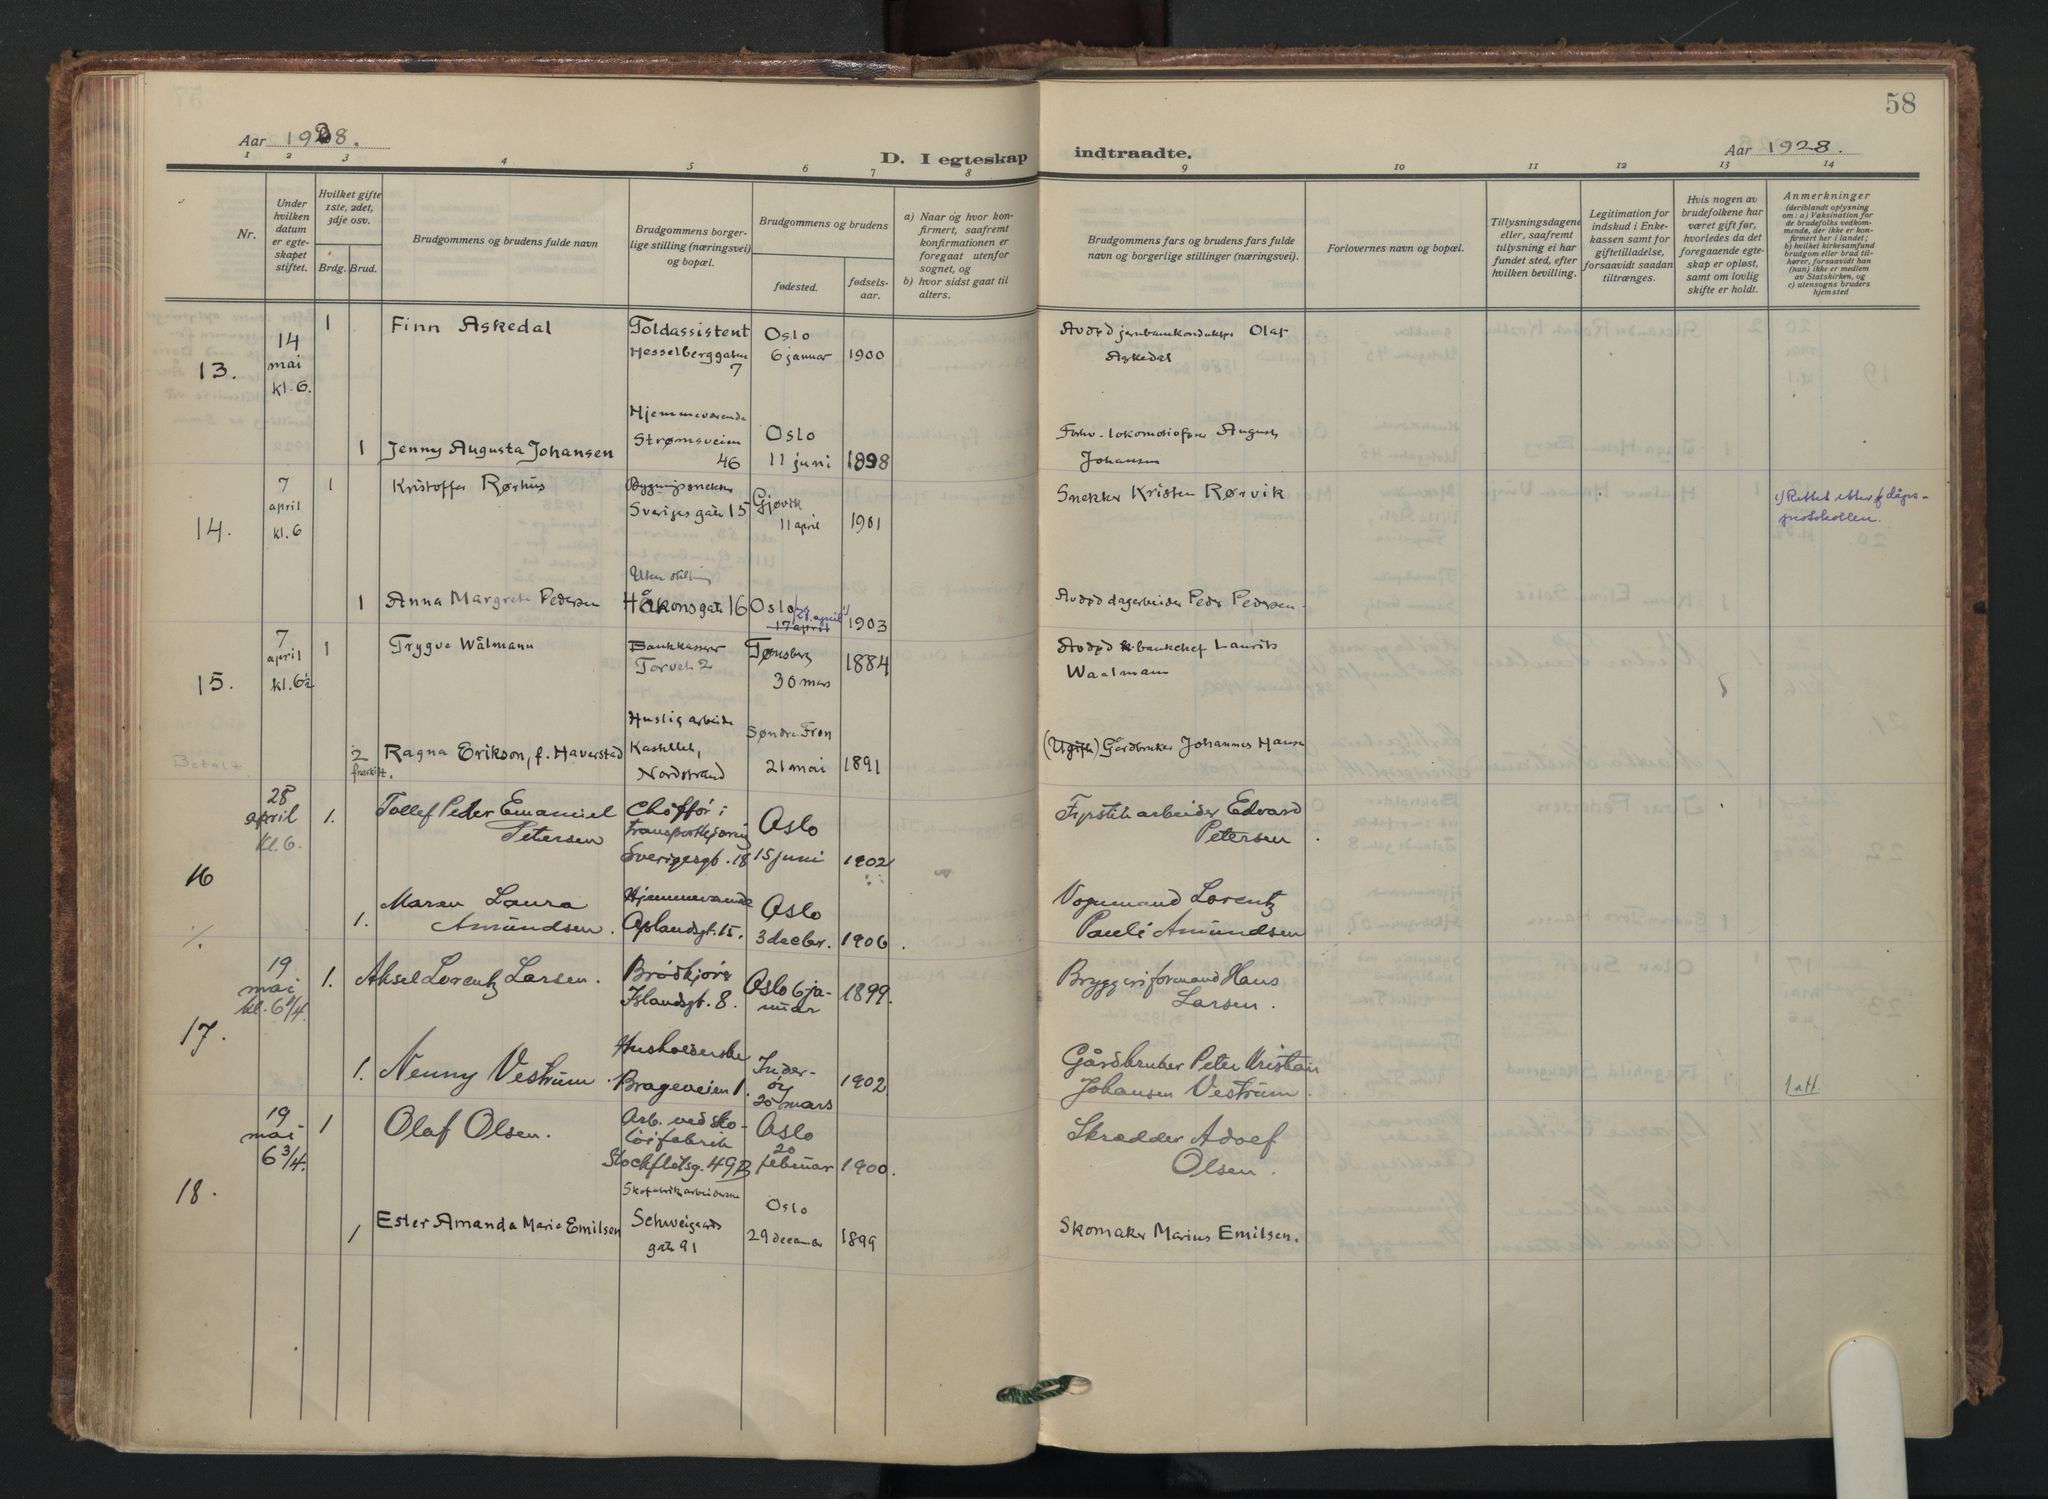 58
Aar 1928.
D. I egteskap indtraadte.
Aar 1928.
1 2 3 4 5 6 7 8 9 10 11 12 13 14
Nr.
Under hvilken datum er egteskapet stiftet.
Hvilket gifte 1ste, 2det, 3dje osv.
Brdg. Brud.
Brudgommens og brudens fulde navn
Brudgommens borgerlige stilling (næringsvei) og bopæl.
Brudgommens og brudens
fødested.
fødselsaar.
a) Naar og hvor konfirmert, saafremt konfirmationen er foregaat utenfor sognet, og
b) hvor sidst gaat til alters.
Brudgommens fars og brudens fars fulde navn og borgerlige stillinger (næringsvei).
Forlovernes navn og bopæl.
Tillysningsdagene eller, saafremt tillysning ei har fundet sted, efter hvilken bevilling.
Legitimation for indskud i Enkekassen samt for giftetilladelse, forsaavidt saadan tiltrænges.
Hvis nogen av brudefolkene har været gift før, hvorledes da det foregaaende egteskap er opløst, samt om lovlig skifte er holdt.
Anmerkninger
(deriblandt oplysning om: a) Vaksination for de brudefolks vedkommende, der ikke er konfirmert her i landet; b) hvilket kirkesamfund brudgom eller brud tilhører, forsaavidt han (hun) ikke er medlem av Statskirken, og c) utensogns bruders hjemsted
13.
14 mai kl. 6.
1
Finn Askedal
Toldassistent
Hesselberggaten 7
Oslo
6 januar
1900
Avdød jernbanekonduktør Olaf
Askedal
1
Jenny Augusta Johansen
Hjemmeværende
Strømsveien
46
Oslo
11 juni
1898
Forhv. lokomotivfører August
Johansen
14.
7 april kl. 6
1
Kristoffer Rørhus
Bygningssnekker
Sveriges gate 15
Gjøvik
11 april
1901
Snekker Kristen Rørvik
1) Rettet etter dåps-
protokollen.
1
Anna Margrete Pedersen
Uten stilling
Håkonsgate 16
Oslo
17 april
1903
Avdød dagarbeider Peder Pedersen
15.
7 april kl. 6½
1
Trygve Wålmann
Bankkasserer
Torvet 2
Tønsberg
30 mars
1884
Avdød bankchef Laurits
Waalmann
2
fraskilt.
Ragna Erikson, f. Haverstad
Huslig arbeide
Kastellet,
Nordstrand
Søndre Fron
21 mai
1891
(Ugift) Gårdbruker Johannes Hansen
16
28 april kl. 6.
1.
Tollef Peder Emanuel
Petersen
Chöffør i
transportkjøring
Sverigesgt. 18
Oslo
15 juni
1902
Fyrstikarbeider Edvard
Petersen.
1.
Maren Laura
Amundsen.
Hjemmeværende
Oplandsgt. 15.
Oslo
3 decbr.
1906.
Vognmand Lorentz
Pauli Amundsen
17.
19 mai kl. 6¼.
1.
Aksel Lorentz Larsen.
Brødkjører
Islandsgt. 8.
Oslo 6 ja-
nuar
1899.
Bryggeriformand Hans
Larsen.
1.
Nenny Vestrum
Husholderske
Brageveien 1.
Inder-
øy
20 mars
1902
Gårdbruker Peter Kristian
Johansen Vestrum.
1 att
18.
19 mai 6¾.
1
Olaf Olsen.
Arb. ved sko-
tøifabrik
Stockfletsg. 49 B
Oslo
20 februar
1900.
Skrædder Adolf
Olsen.
1
Ester Amanda Marie Emilsen
Skofabrikarbeiderske
Schweigaards
gate 91
Oslo
29 december
1899
Skomaker Marius Emilsen.